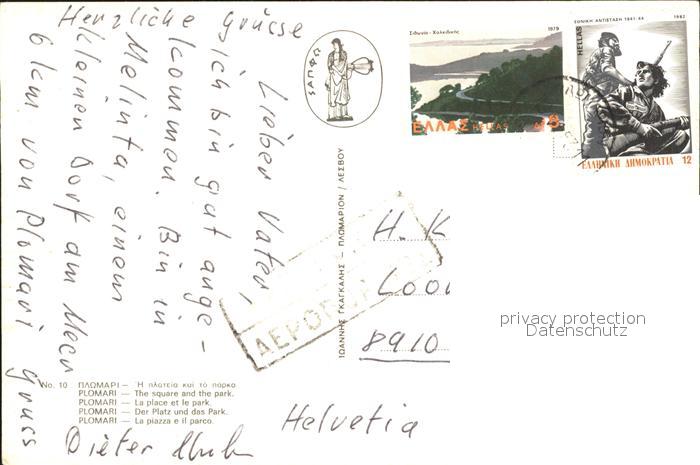 Herzliche Grüsse
Lieber Vater,
ich bin gut ange-
kommen. Bin in
Melinta, einem
kleinen Dorf am Meer
6 km von Plomari
Gruss
Dieter
ΣΑΠΦΩ
Σιθωνία - Χαλκιδικής 1979
ΕΛΛΑΣ HELLAS
8
ΕΘΝΙΚΗ ΑΝΤΙΣΤΑΣΗ 1941-44 1982
HELLAS
ΕΛΛΗΝΙΚΗ ΔΗΜΟΚΡΑΤΙΑ 12
ΙΩΑΝΝΗΣ ΓΚΑΓΚΑΛΗΣ — ΠΛΩΜΑΡΙΟΝ / ΛΕΣΒΟΥ
H. K
8910
Helvetia
privacy protection
Datenschutz
No. 10 ΠΛΩΜΑΡΙ — Ἡ πλατεῖα καὶ τὸ πάρκο.
PLOMARI — The square and the park.
PLOMARI — La place et le park.
PLOMARI — Der Platz und das Park.
PLOMARI — La piazza e il parco.